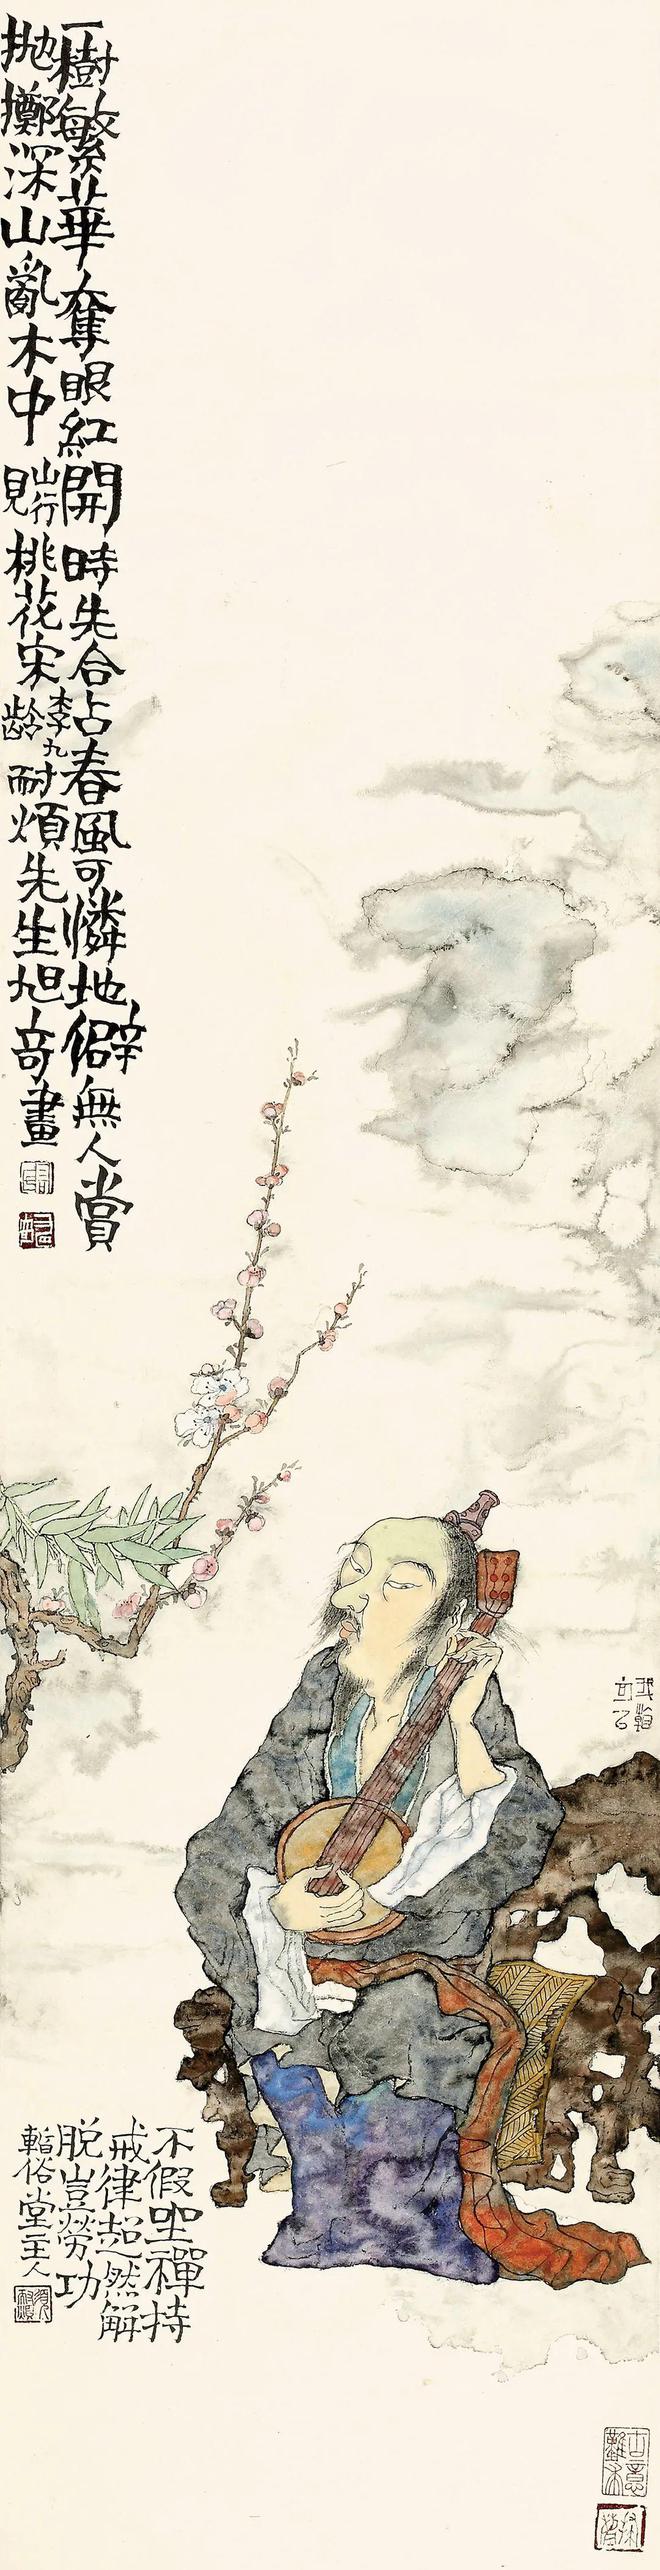 一樹繁華奪眼紅開時先合占春風可憐地僻無人賞
抛擲深山亂木中 山行見桃花宋李九齡 耐煩先生旭奇畫
不假坐禪持
戒律超然解
脱豈勞功
俗堂主人
古意難求